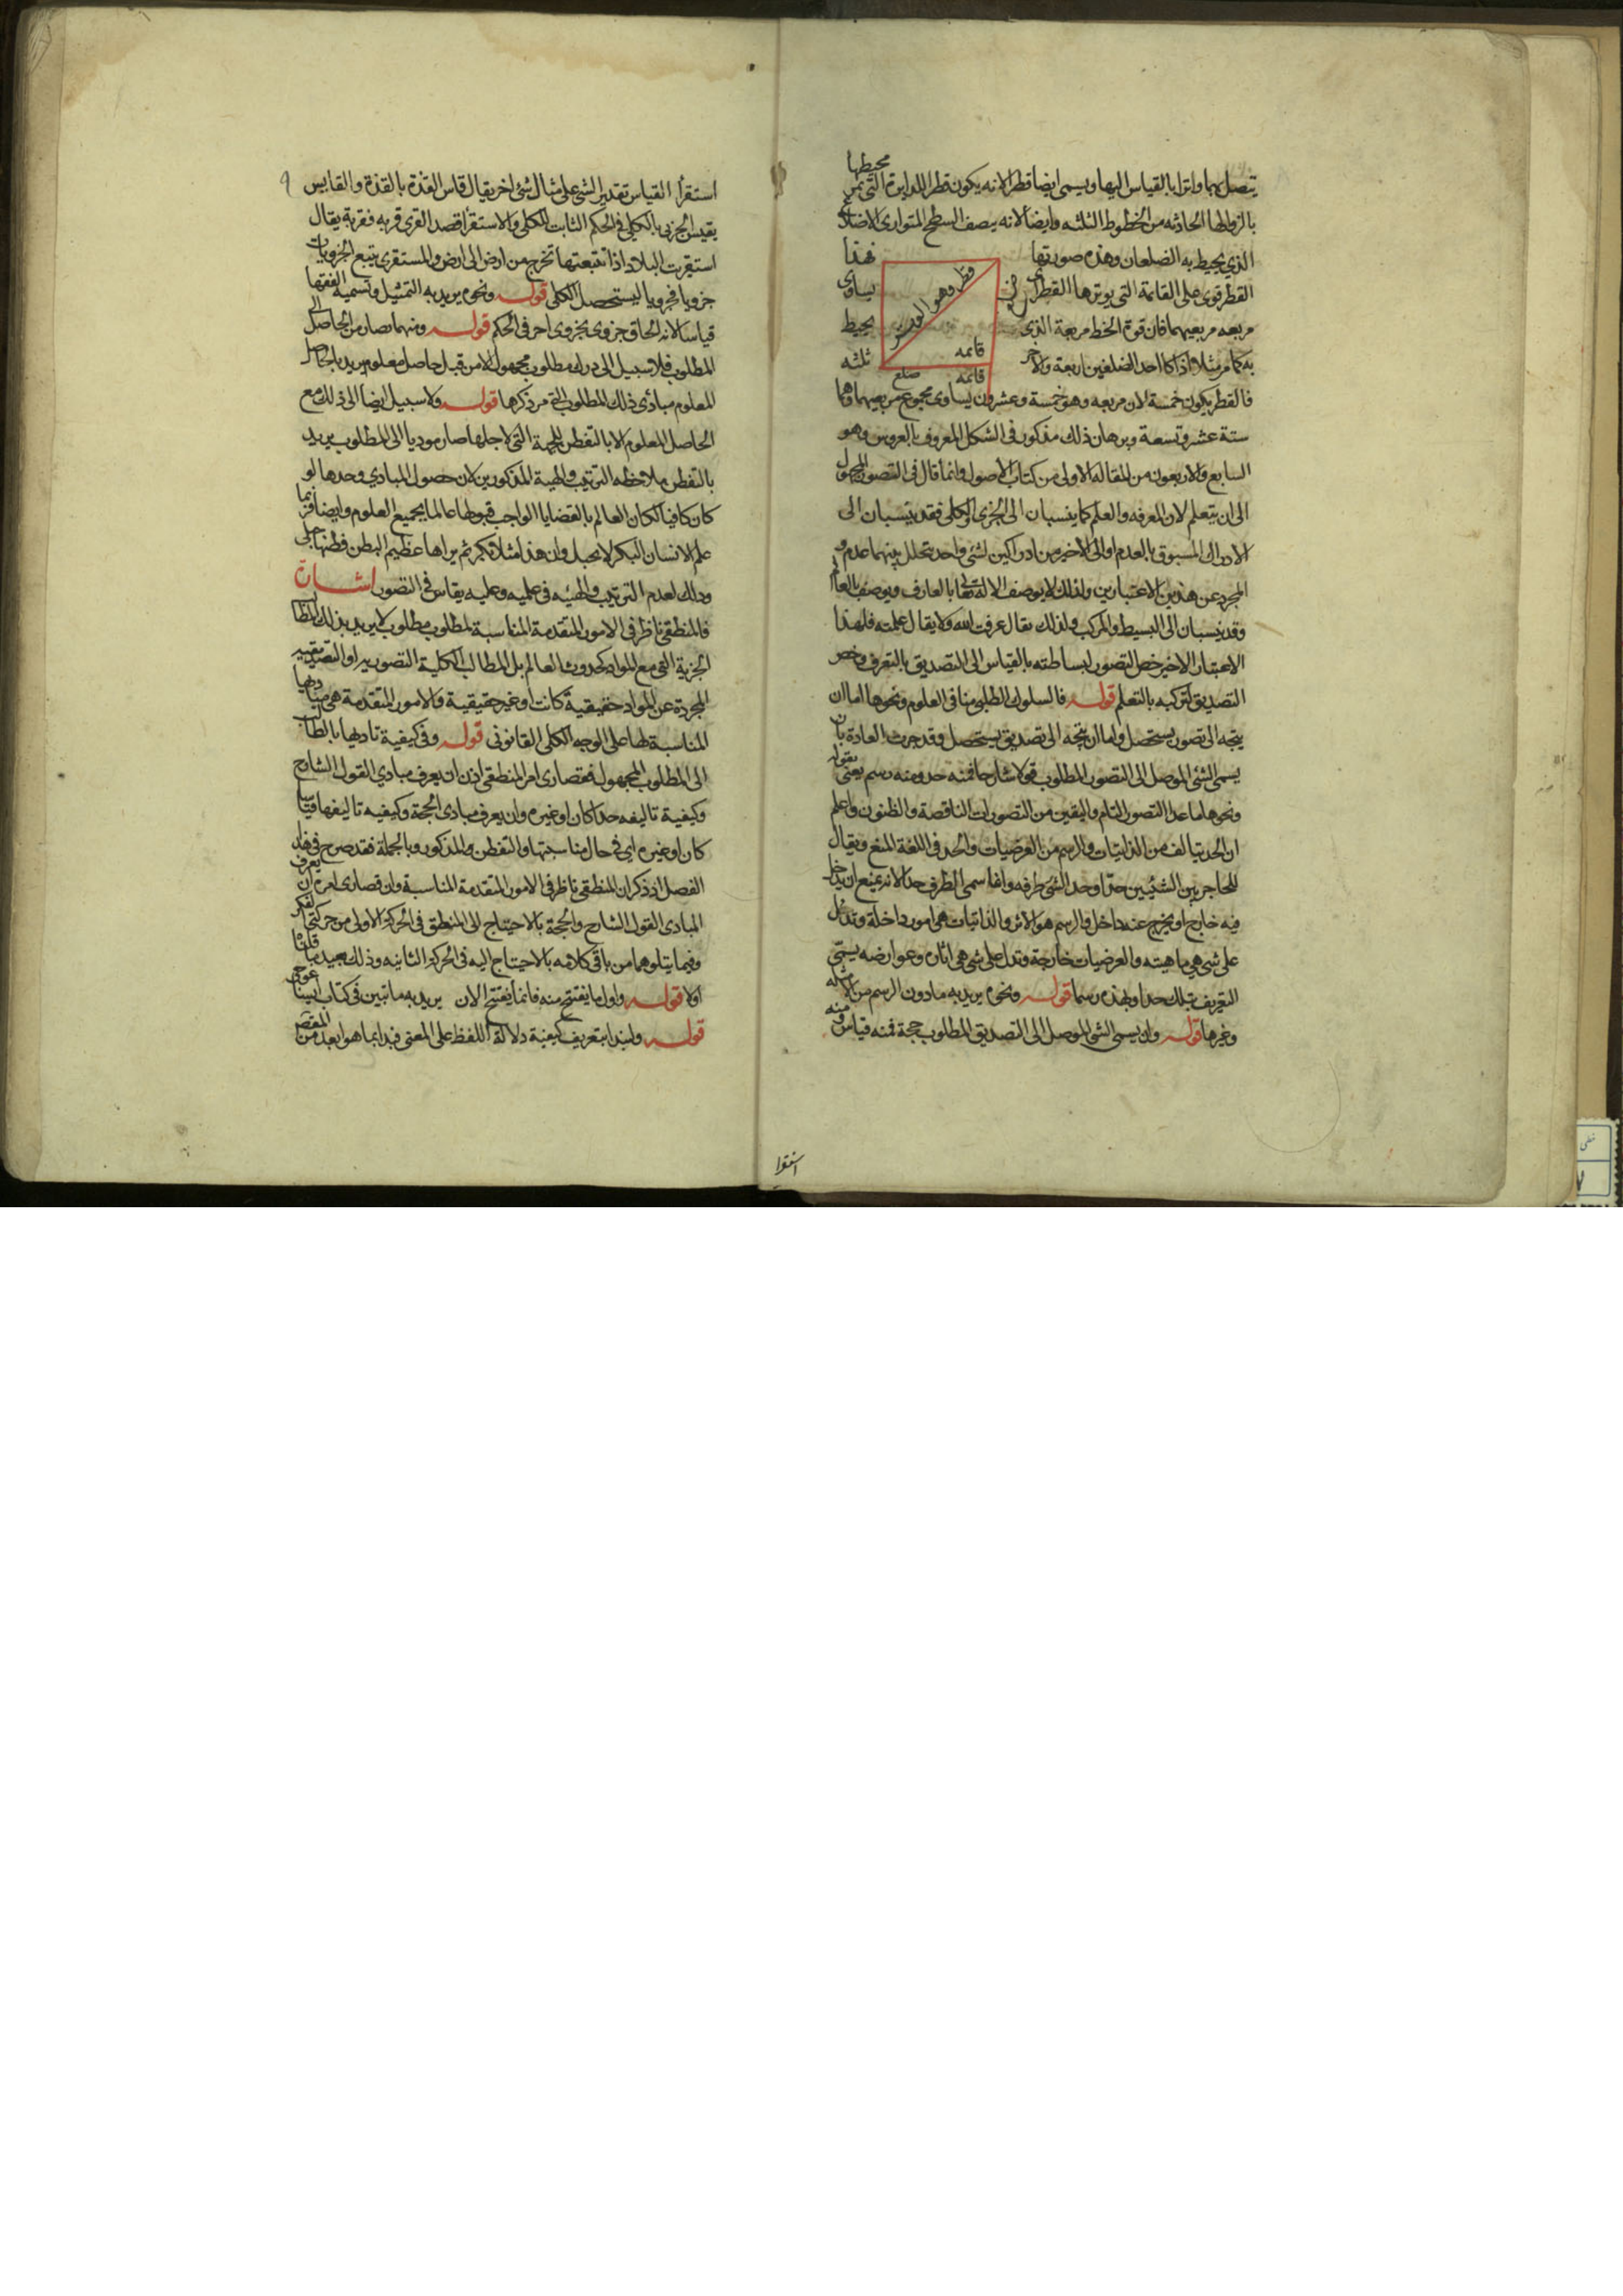 يتصل بهما وترا بالقياس اليها ويسمى ايضا قطرا لانه يكون قطر الدايرة التى تمر محيطها
بالزوايا الحادثه من الخطوط الثلثه وايضا لانه ينصف السطح المتوازى الاضلاع
الذي يحيط به الضلعان وهذه صورتها فهذا
القطر قوى على القائمة التى يوترها القطر اى يساوى
مربعه مربعيهما فان قوة الخط مربعة الذى يحيط
به كما مر مثلا اذا كان احد الضلعين اربعة والاخر ثلثه
قطر وهو الوتر
قائمه
قائمه
ضلع
فالقطر يكون خمسة لان مربعه وهو خمسة وعشرون يساوى مجموع مربعيهما وهما
ستة عشر وتسعة وبرهان ذلك مذكور فى الشكل المعروف بالعروس وهو
السابع والاربعون من المقاله الاولى من كتاب الاصول وانما قال فى التصور المجهول
الى ان يتعلم لان المعرفه والعلم كما ينسبان الى الجزى والكلى فقد ينسبان الى
الادراك المسبوق بالعدم او الى الاخير من ادراكين لشئ واحد يتخلل بينهما عدم و
المجرد عن هذين الاعتبارين ولذلك لا يوصف الاله تعالى بالعارف ويوصف بالعالم
وقد ينسبان الى البسيط والمركب ولذلك يقال عرفت الله ولا يقال علمته فلهذا
الاعتبار الاخير خص التصور لبساطته بالقياس الى التصديق بالتعرف وخص
التصديق لتركبه بالتعلم قوله فالسلوك الطلبى منا فى العلوم ونحوها اما ان
يتجه الى تصور يستحصل واما ان يتجه الى تصديق يستحصل وقد جرت العادة بان
يسمى الشئ الموصل الى التصور المطلوب قولا شارحا فمنه حد ومنه رسم يعنى بقوله
ونحوها ما عدا التصور التام واليقين من التصورات الناقصة والظنون واعلم
ان الحد يتالف من الذاتيات والرسم من العرضيات والحد فى اللغة المنع ويقال
للحاجز بين الشيئين حدا وحد الشئ طرفه وانما سمى الطرف حدا لانه يمنع ان يدخل
فيه خارج او يخرج عنه داخل والرسم هو الاثر والذاتيات هى امور داخلة وتدل
على شى هى ماهيته والعرضيات خارجة وتدل على شى هى اثاره وعوارضه يسمى
التعريف بتلك حدا وبهذه رسما قوله ونحوه يريد به ما دون الرسم من الامثله
وغيرها قوله وان يسمى الشئ الموصل الى التصديق المطلوب حجة فمنه قياس ومنه
استقرا
استقرأ القياس تقدير الشئ على مثال شئ اخر يقال قاس القذة بالقذة والقايس
يقيس الجزى بالكلى فى الحكم الثابت للكلى والاستقرا قصد القرى قريه فقرية يقال
استقريت البلاد اذا تتبعتها تخرج من ارض الى ارض والمستقرى يتتبع الجزويات
جزويا فجزويا ليستحصل الكلى قوله ونحوه يريد به التمثيل وتسميه الفقها
قياسا لانه الحاق جزوى بجزوى اخر فى الحكم قوله ومنهما يصار من الحاصل الى
المطلوب فلا سبيل الى درك مطلوب مجهول الا من قبل حاصل معلوم يريد بالحاصل
المعلوم مبادئ ذلك المطلوب التى مر ذكرها قوله ولا سبيل ايضا الى ذلك مع
الحاصل المعلوم الا بالتفطن للجهة التى لاجلها صار موديا الى المطلوب يريد
بالتفطن ملاحظه الترتيب والهيئة المذكورين لان حصول المبادي وحدها لو
كان كافيا لكان العالم بالقضايا الواجب قبولها عالما بجميع العلوم وايضا فربما
علم الانسان البكر لا يحبل وان هذه مثلا بكر ثم يراها عظيم البطن فظنها حبلى
وذلك لعدم الترتيب والهيئه فى علميه وعليه يقاس فى التصور اشارة
فالمنطقى ناظر فى الامور المتقدمة المناسبة لمطلوب مطلوب لا يريد بذلك المطالب
الجزية التى مع المواد كحدوث العالم بل المطالب الكلية التصوريه او التصديقيه
المجردة عن المواد حقيقية كانت او غير حقيقية والامور المتقدمة هى مباديها
المناسبة لها على الوجه الكلى القانونى قوله وفى كيفية تاديها بالطالب
الى المطلوب المجهول فقصارى امر المنطقى اذن ان يعرف مبادي القول الشارح
وكيفية تاليفه حدا كان او غيره وان يعرف مبادى الحجة وكيفيه تاليفها قياسا
كان او غيره اى فى حال مناسبتها والتفطن والمذكور وبالجملة فقد صرح فى هذا
الفصل اذ ذكر ان المنطقى ناظر فى الامور المتقدمة المناسبة وان قصارى امره ان يعرف
المبادى القول الشارح والحجة بالاحتياج الى المنطق فى الحركة الاولى من حركتى الفكر
وفيما يتلوهما من باقى كلامه بالاحتياج اليه فى الحركة الثانيه وذلك يعيد ما قلناه
اولا قوله واول ما يفتتح منه فانما يفتتح الان يريد به ما تبين فى كتاب ايساغوجى
قوله ولنبدا بتعريف كيفية دلالة اللفظ على المعنى فبدا بما هو ابعد من المقصد